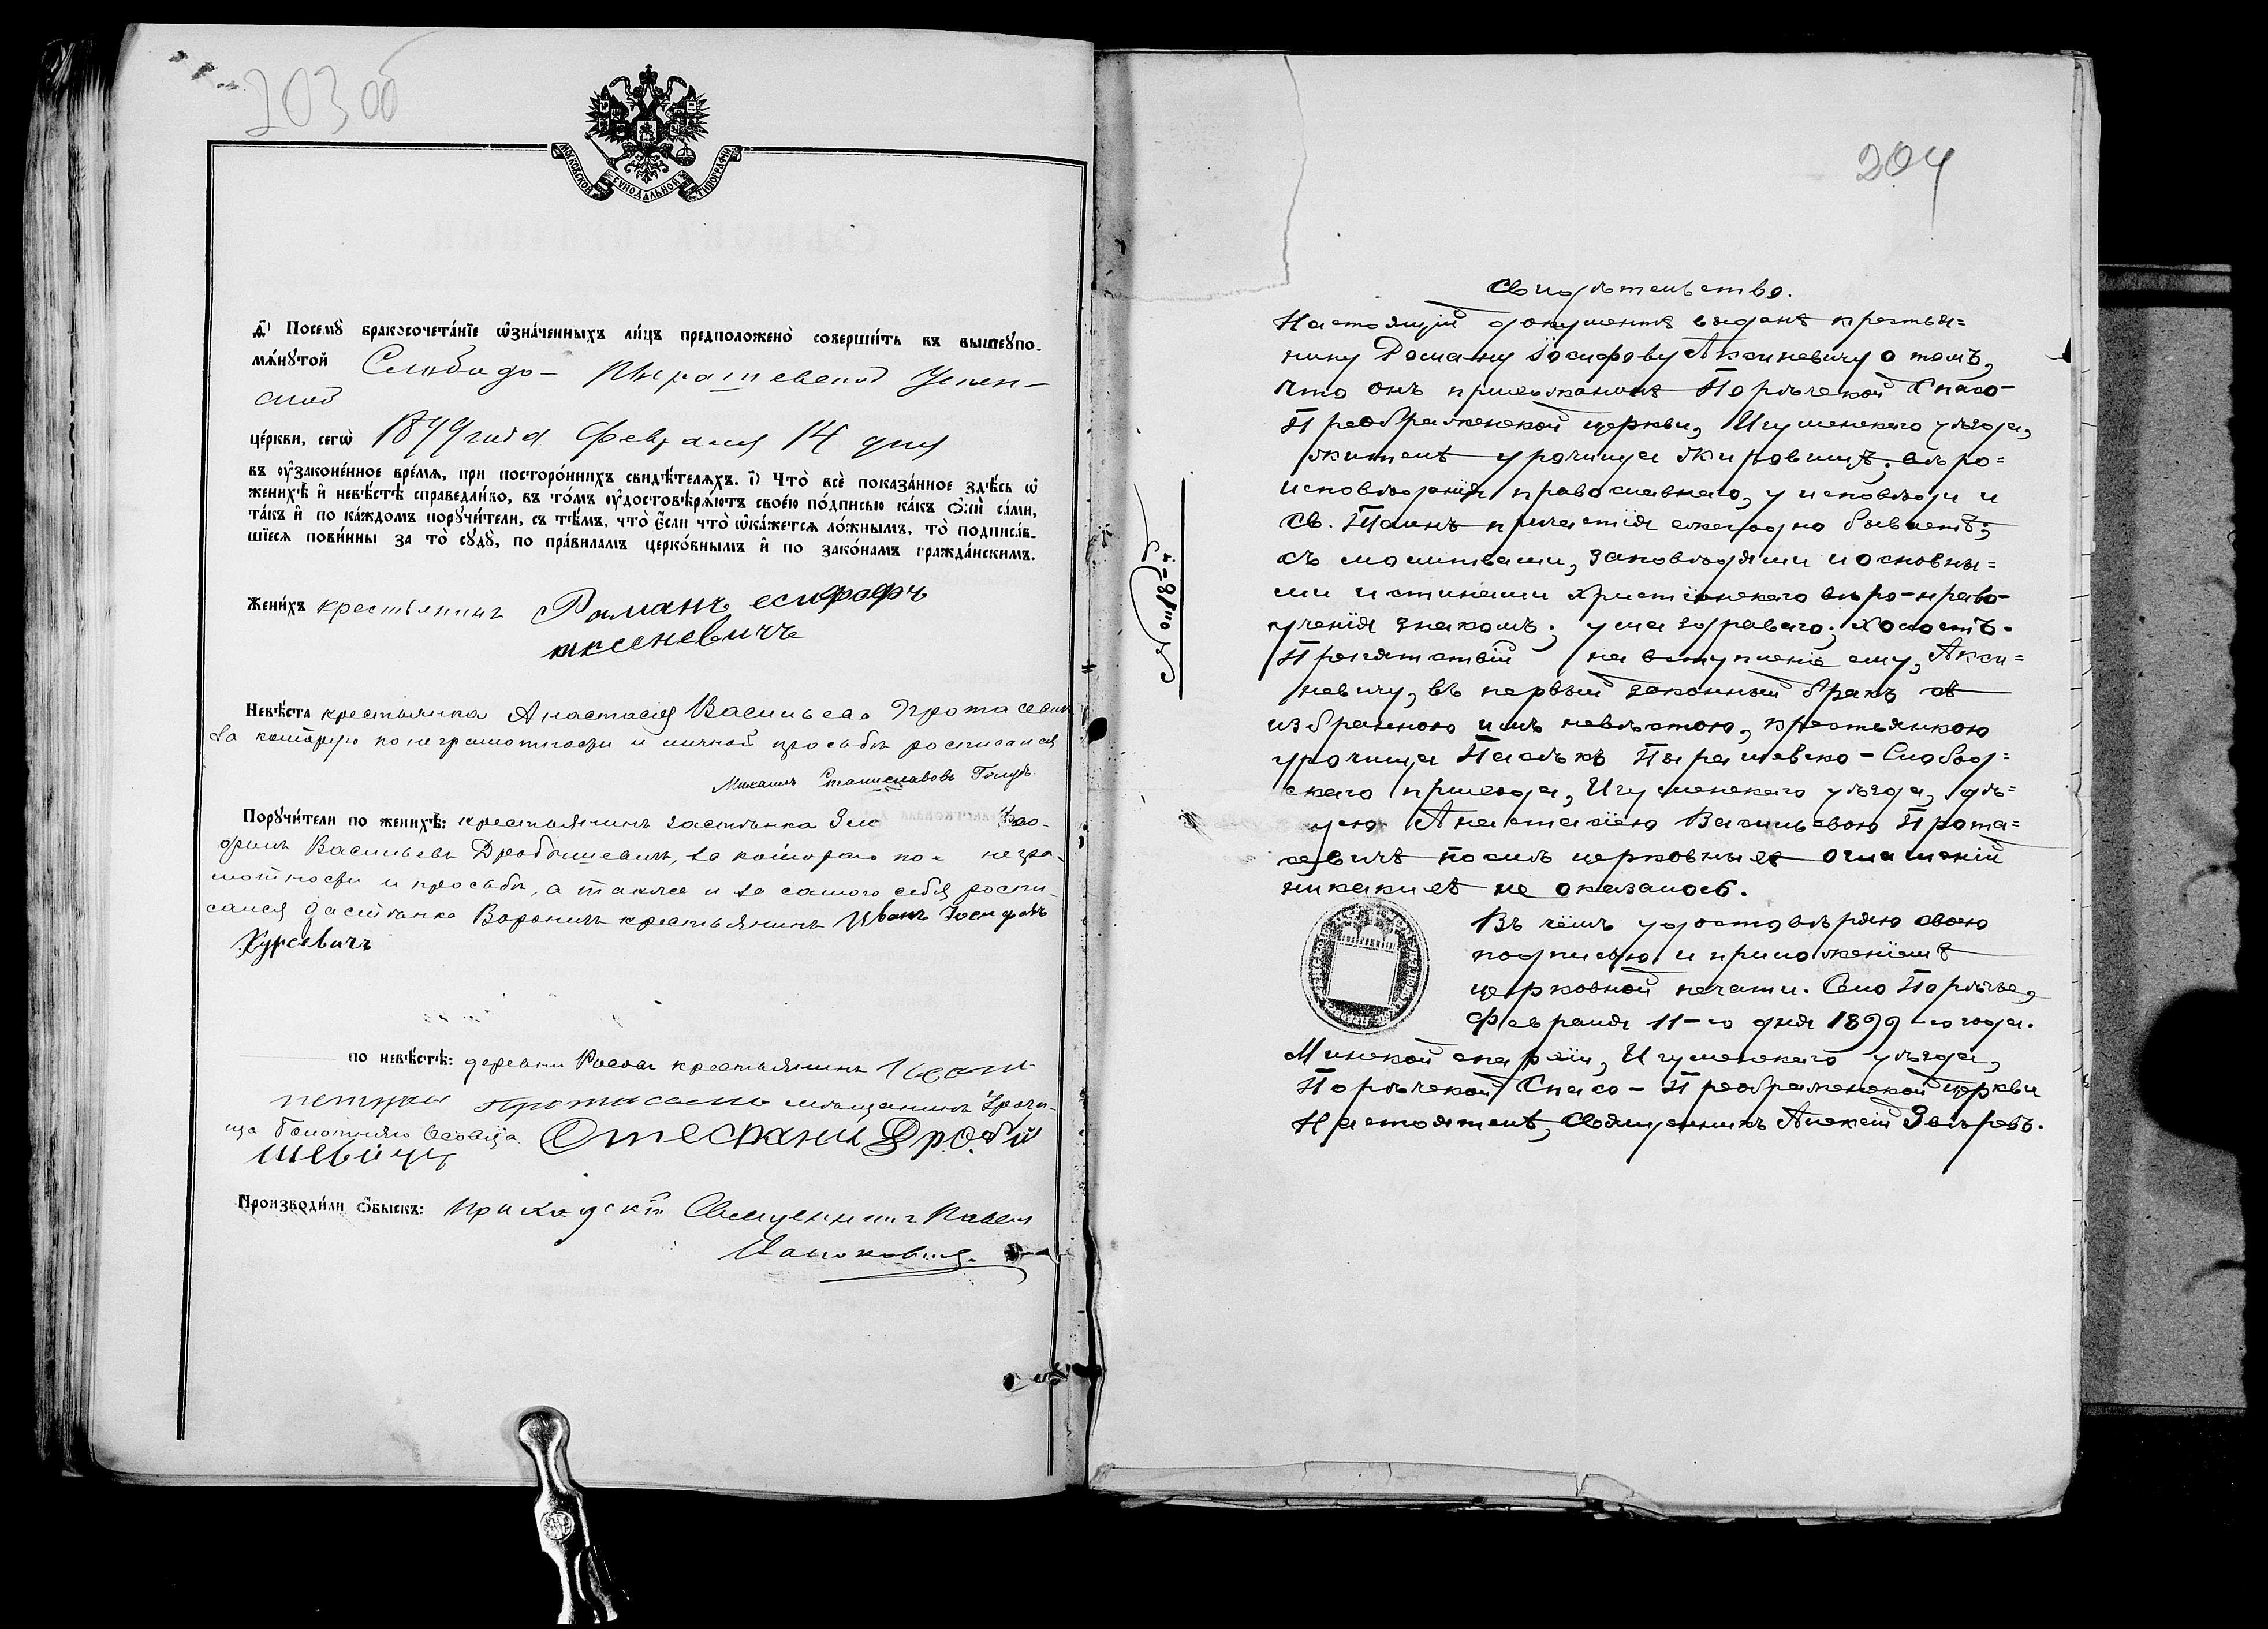 203 об
МОСКОВСКОЙ СѴНОДАЛЬНОЙ ТИПОГРАФІИ
д҃) Посемꙋ̀ бракосочета́нїе ѡ҆зна́ченныхъ ли́цъ предположено̀ соверши́ть въ вышеꙋпо-
мѧ́нꙋтой Слободо-Пырашевской Успен-
ской
це́ркви, сегѡ̀ 1899 года Февраля 14 дня
въ ᲂу҆зако́ненное вре́мѧ, при посторо́ннихъ свидѣ́телѧхъ. і҃) Что̀ всѐ показа́нное здѣ́сь ѡ҆
женихѣ̀ и҆ невѣ́стѣ справедли́во, въ то́мъ ᲂу҆достовѣрѧ́ютъ своє́ю по́дписью ка́къ ѻ҆нѝ са́ми,
та́къ и҆ по ка́ждомъ порꙋчи́тели, съ тѣ́мъ, что̀ є҆́сли что̀ ѡ҆ка́жетсѧ ло́жнымъ, то̀ подписа́в-
шїесѧ пови́нны за то̀ сꙋдꙋ̀, по пра́виламъ церко́внымъ и҆ по зако́намъ гражда́нскимъ.
Жени́хъ крестьянинъ Романъ есифофъ
аксеневичъ
Невѣ́ста крестьянка Анастасія Васильева Протасевич
за которую по неграмотности и личной просьбѣ росписался
Михаилъ Станиславовъ Голубъ
Порꙋчи́тели по женихѣ̀: крестьянинъ застѣнка
Васильевъ Дробышевичъ, за котораго по негра-
мотности и просьбѣ, а также и за самого себя роспи-
сался застѣнка Вороничъ крестьянинъ Иванъ Іосифовъ
Хурсевичъ
по невѣ́стѣ: деревни крестьянинъ
мѣщанинъ Урочи-
ща Болотняго Осовца Стефанъ Дроби
шевичъ
Производи́ли ѻ҆́быскъ: Приходскій Священникъ Павелъ
204
Свидѣтельство.
Настоящій документъ выданъ крестья=
нину Роману Іосифову Аксиневичу о томъ,
что онъ прихожанинъ Порѣчской Спасо-
Преображенской церкви, Игуменскаго уѣзда,
житель урочища Жировищъ; вѣро=
исповѣданія православнаго, у исповѣди и
Св. Таинъ причастія ежегодно бываетъ;
съ молитвами, заповѣдями и основны=
ми истинами христіанскаго вѣро-нраво-
ученія знакомъ; ума здраваго; холостъ.
Препятствій на вступленіе ему, Акси=
невичу, въ первый законный бракъ съ
избранною имъ невѣстою, крестьянкою
урочища Пасѣкъ Пырашевско-Слобод=
скаго прихода, Игуменскаго уѣзда, дѣ=
ицею Анастасіею Васильевою Прота=
севичъ послѣ церковныхъ оглашеній
никакихъ не оказалось.
Въ чемъ удостовѣряю свою
подписью и приложеніемъ
церковной печати. Село Порѣчье,
Февраля 11-го дня 1899-го года.
Минской епархіи, Игуменскаго уѣзда,
Порѣчской Спасо-Преображенской церкви
Настоятель, Священникъ Алексій Звѣревъ.